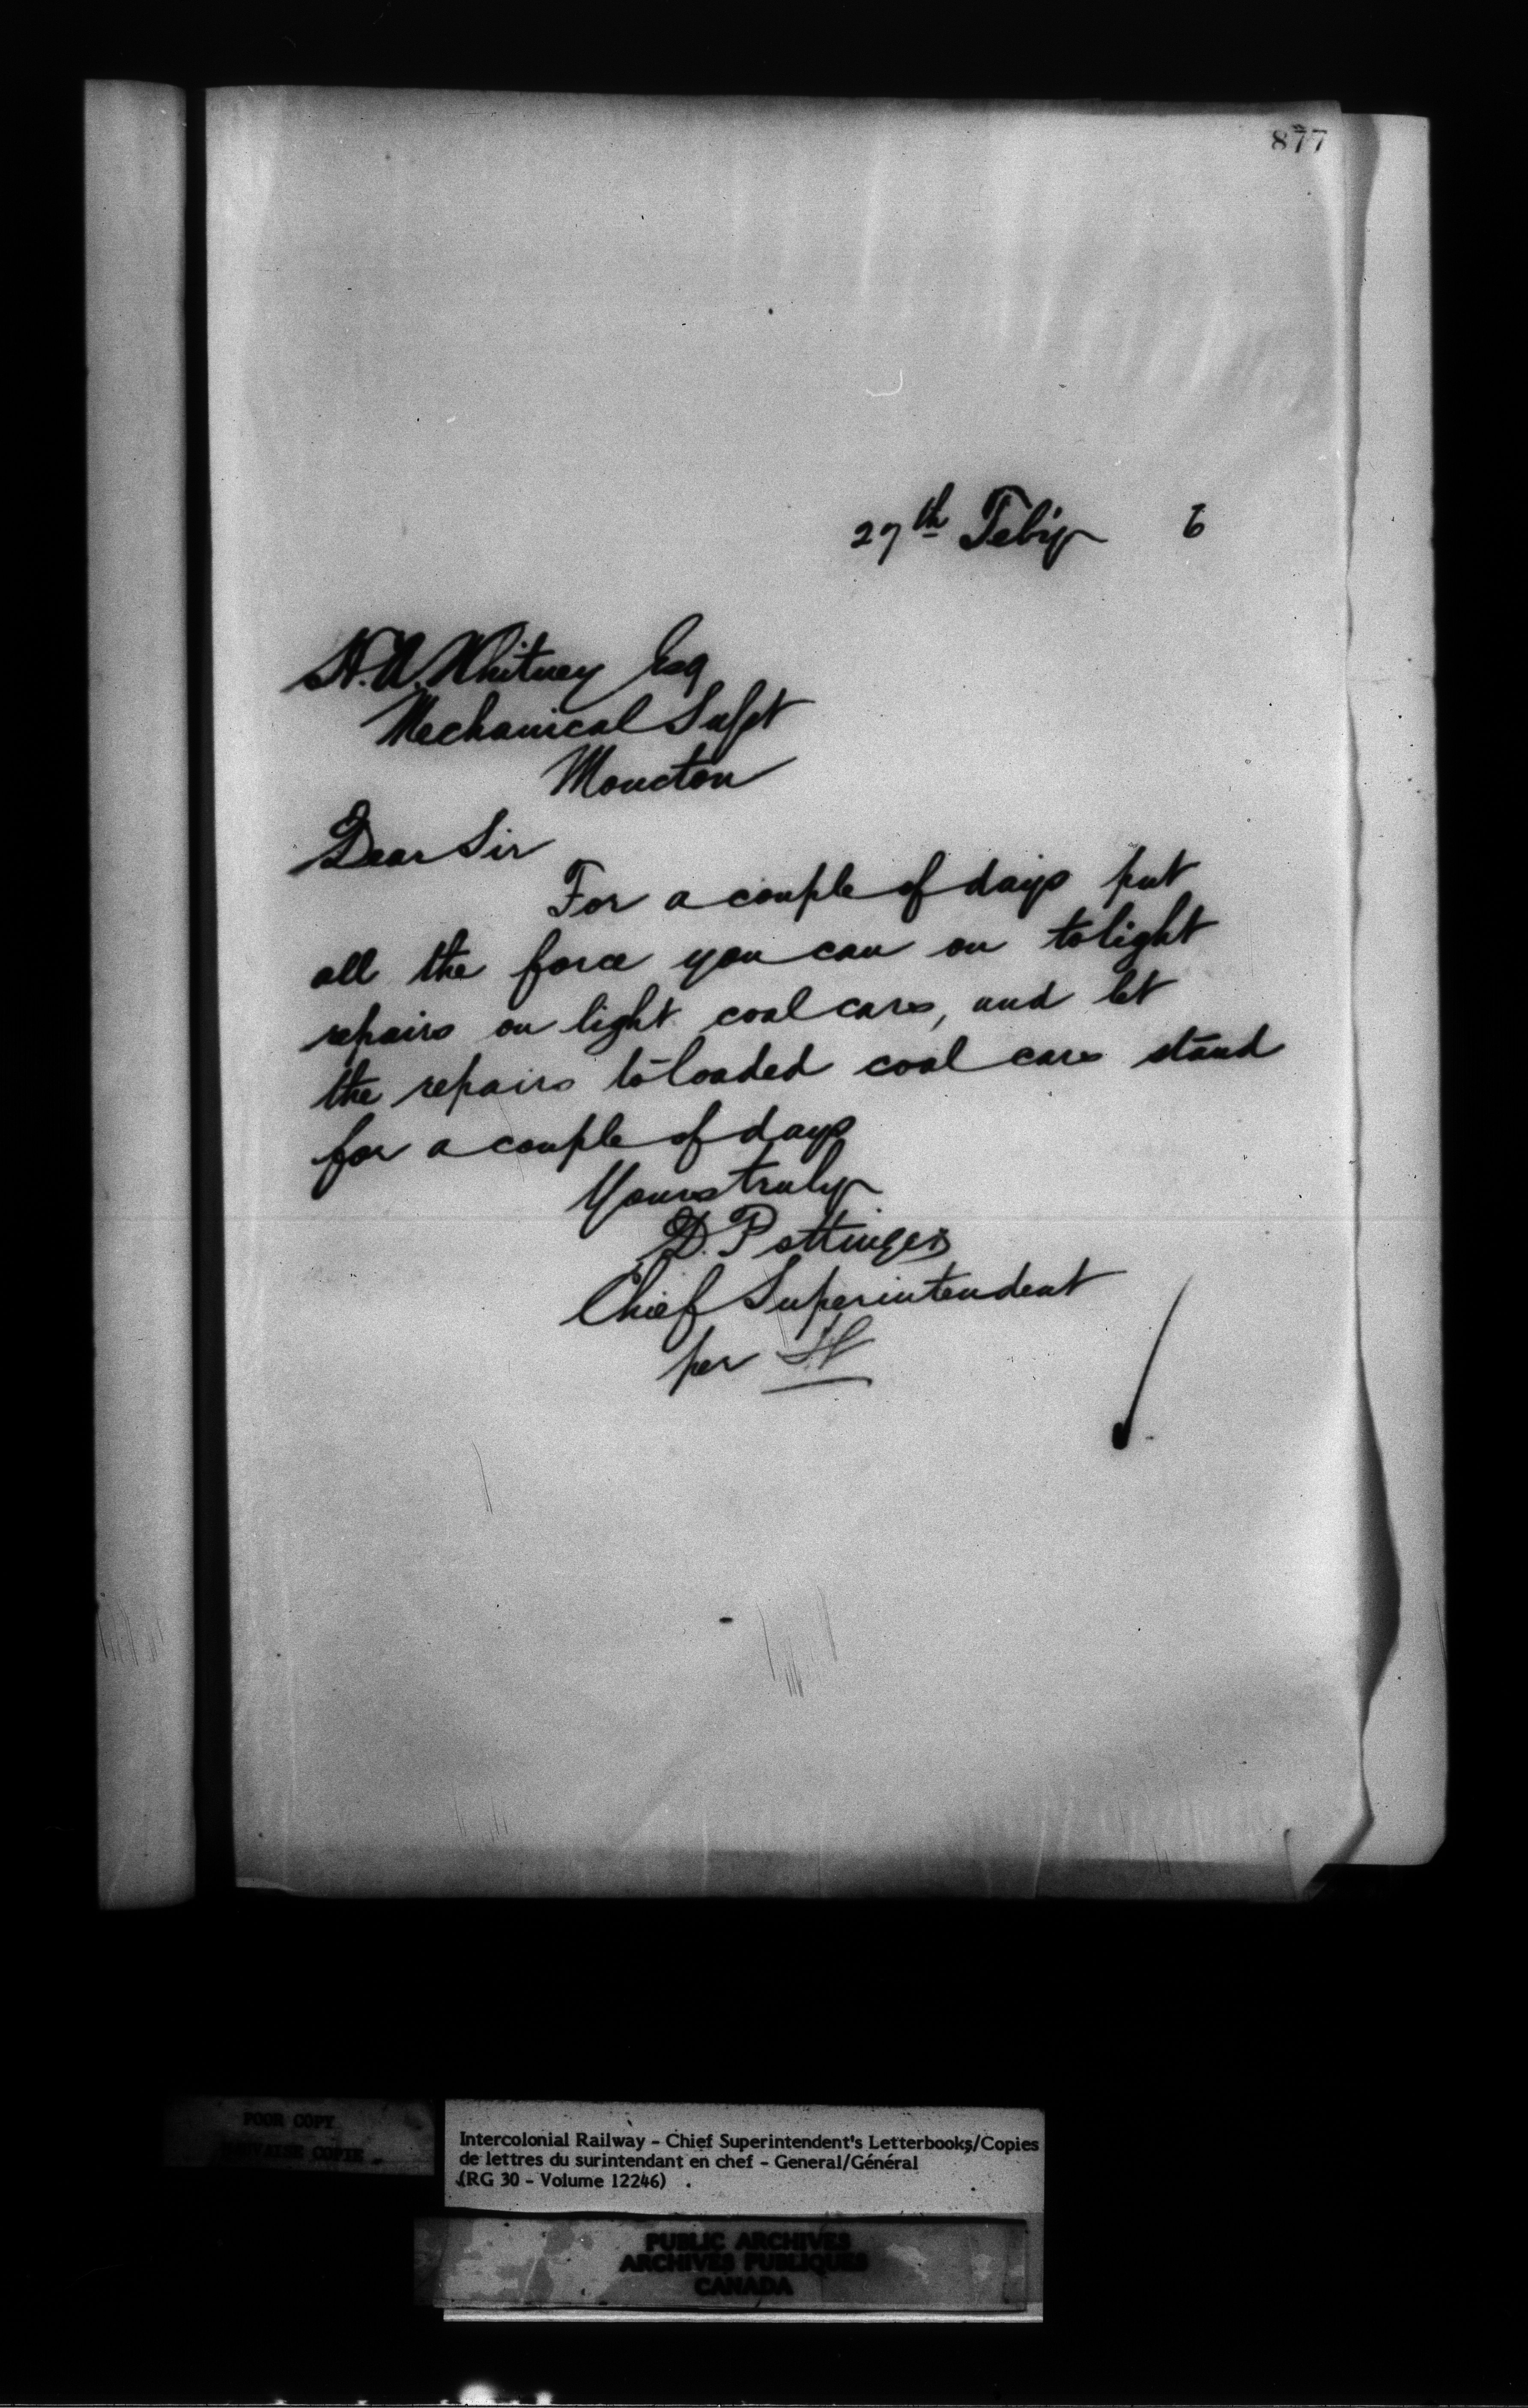 877
27th Feby 6
H. A. Whitney Esq
Mechanical Supt
Moncton
Dear Sir
For a couple of days put
all the force you can on to light
repairs on light coal cars, and let
the repairs to loaded coal cars stand
for a couple of days
Yours truly
D. Pottinger
Chief Superintendent
per
POOR COPY
MAUVAISE COPIE
Intercolonial Railway - Chief Superintendent's Letterbooks/Copies
de lettres du surintendant en chef - General/Général
(RG 30 - Volume 12246)
PUBLIC ARCHIVES
ARCHIVES PUBLIQUES
CANADA